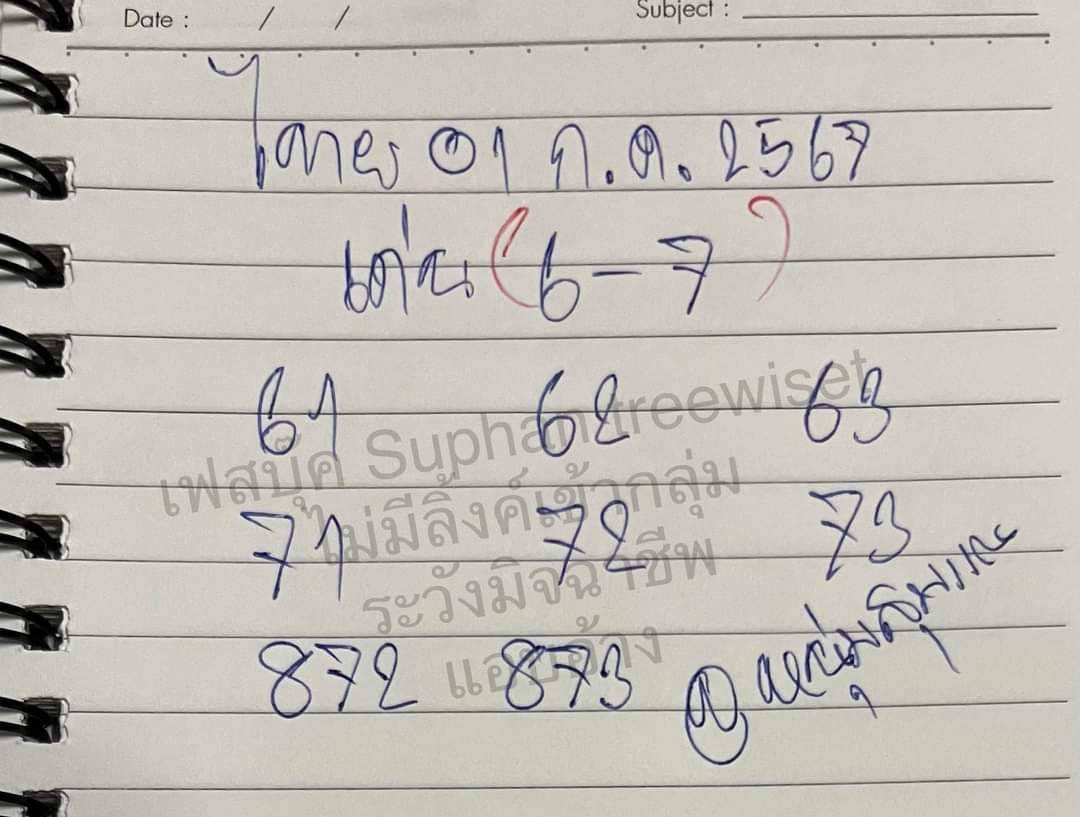 Date : / / Subject :
ไทย 01 ก.ค. 2567
เด่น (6-7)
61 62 63
เฟสบุ๊ค Suphantreewiset
ไม่มีลิ้งค์เข้ากลุ่ม
71 72 73
ระวังมิจฉาชีพ
แอบอ้าง
872 873